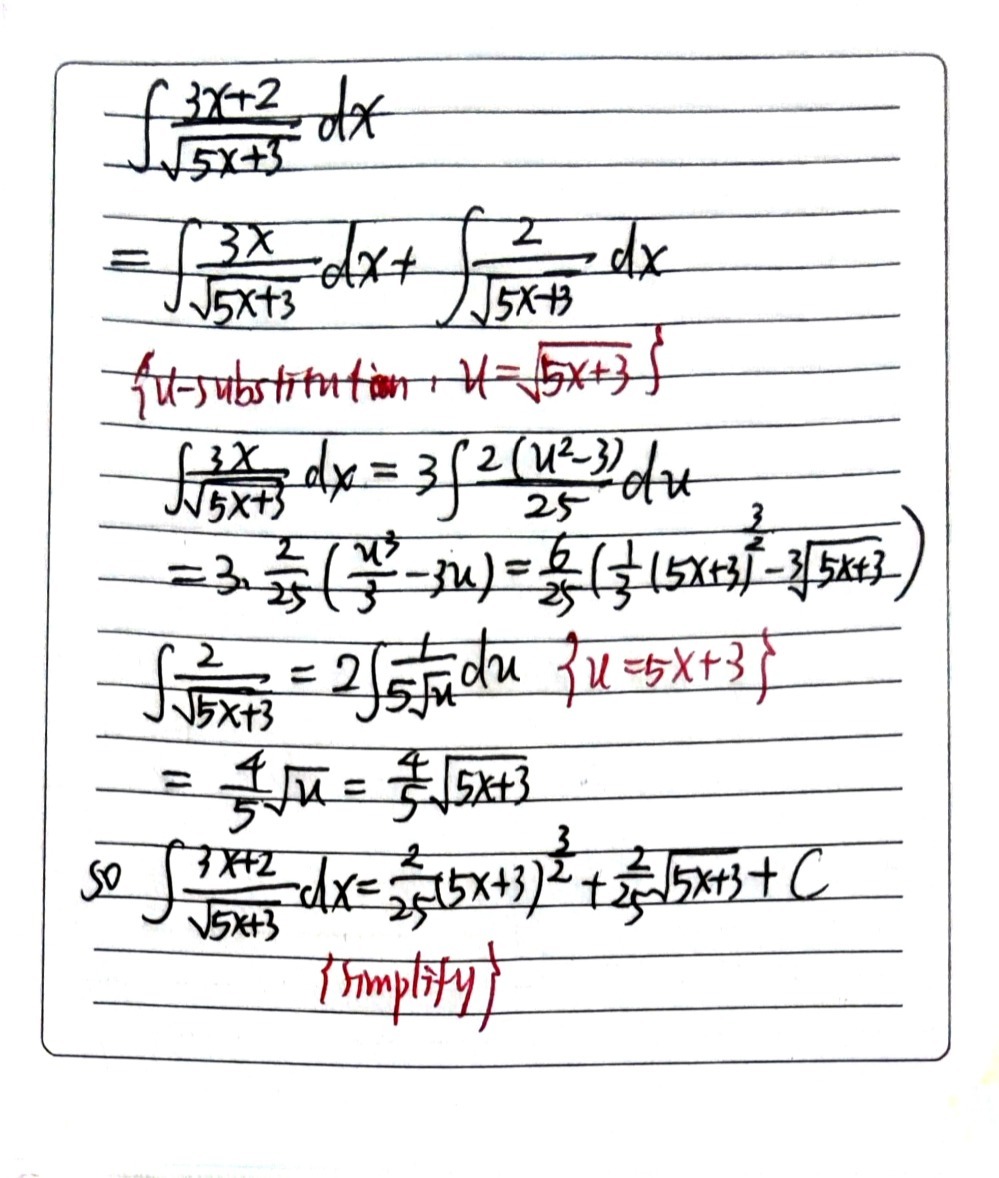 ∫ (3x+2)/√(5x+3) dx
= ∫ 3x/√(5x+3) dx + ∫ 2/√(5x+3) dx
{u-substitution, u=√(5x+3)}
∫ 3x/√(5x+3) dx = 3∫ 2(u²-3)/25 du
= 3· 2/25 (u³/3 - 3u) = 6/25 (1/3 (5x+3)^(3/2) - 3√(5x+3))
∫ 2/√(5x+3) = 2∫ 1/(5√u) du {u=5x+3}
= 4/5 √u = 4/5 √(5x+3)
so ∫ (3x+2)/√(5x+3) dx = 2/25 (5x+3)^(3/2) + 2/25 √(5x+3) + C
{simplify}